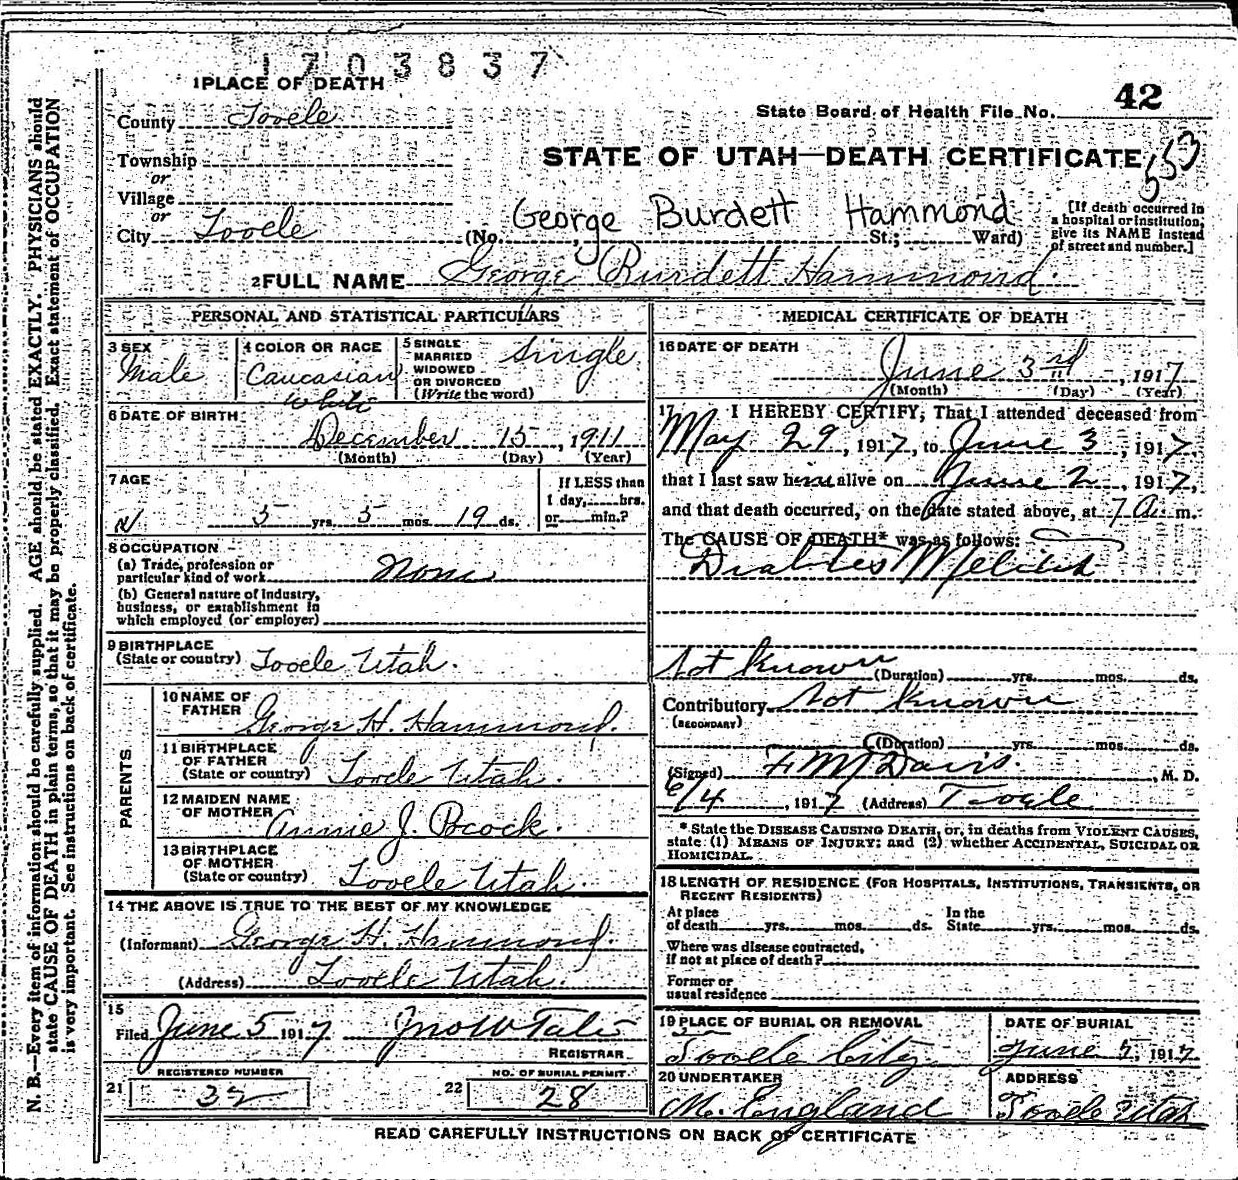 1703837
1 PLACE OF DEATH
County Tooele
State Board of Health File No. 42
Township
or
STATE OF UTAH—DEATH CERTIFICATE 553
Village
or
City Tooele (No. George Burdett Hammond St.; Ward)
[If death occurred in
a hospital or institution,
give its NAME instead
of street and number.]
2 FULL NAME George Burdett Hammond.
PERSONAL AND STATISTICAL PARTICULARS
3 SEX
Male
4 COLOR OR RACE
Caucasian
White
5 SINGLE
MARRIED
WIDOWED
OR DIVORCED
(Write the word)
Single
6 DATE OF BIRTH
December 15, 1911
(Month) (Day) (Year)
7 AGE
5 yrs. 5 mos. 19 ds.
If LESS than
1 day, hrs.
or min.?
8 OCCUPATION
(a) Trade, profession or
particular kind of work None
(b) General nature of Industry,
business, or establishment in
which employed (or employer)
9 BIRTHPLACE
(State or country) Tooele Utah.
PARENTS
10 NAME OF
FATHER George H. Hammond.
11 BIRTHPLACE
OF FATHER
(State or country) Tooele Utah.
12 MAIDEN NAME
OF MOTHER Annie J. Pocock.
13 BIRTHPLACE
OF MOTHER
(State or country) Tooele Utah.
14 THE ABOVE IS TRUE TO THE BEST OF MY KNOWLEDGE
(Informant) George H. Hammond.
(Address) Tooele Utah.
15
Filed June 5 1917 Jno W Tate
REGISTRAR
REGISTERED NUMBER
21 32
NO. OF BURIAL PERMIT
22 28
MEDICAL CERTIFICATE OF DEATH
16 DATE OF DEATH
June 3rd, 1917
(Month) (Day) (Year)
17 I HEREBY CERTIFY, That I attended deceased from
May 29, 1917, to June 3, 1917,
that I last saw him alive on June 2, 1917,
and that death occurred, on the date stated above, at 7 A. m.
The CAUSE OF DEATH* was as follows:
Diabetes Melitis
Not Known
(Duration) yrs. mos. ds.
Contributory Not Known
(SECONDARY)
(Duration) yrs. mos. ds.
(Signed) F M Davis, M. D.
6/4, 1917 (Address) Tooele
* State the DISEASE CAUSING DEATH, or, in deaths from VIOLENT CAUSES,
state (1) MEANS OF INJURY; and (2) whether ACCIDENTAL, SUICIDAL OR
HOMICIDAL.
18 LENGTH OF RESIDENCE (FOR HOSPITALS, INSTITUTIONS, TRANSIENTS, OR
RECENT RESIDENTS)
At place
of death yrs. mos. ds.
In the
State yrs. mos. ds.
Where was disease contracted,
if not at place of death?
Former or
usual residence
19 PLACE OF BURIAL OR REMOVAL
Tooele City
DATE OF BURIAL
June 5, 1917
20 UNDERTAKER
M. England
ADDRESS
Tooele Utah
READ CAREFULLY INSTRUCTIONS ON BACK OF CERTIFICATE
N. B.—Every item of information should be carefully supplied. AGE should be stated EXACTLY. PHYSICIANS should
state CAUSE OF DEATH in plain terms, so that it may be properly classified. Exact statement of OCCUPATION
is very important. See instructions on back of certificate.